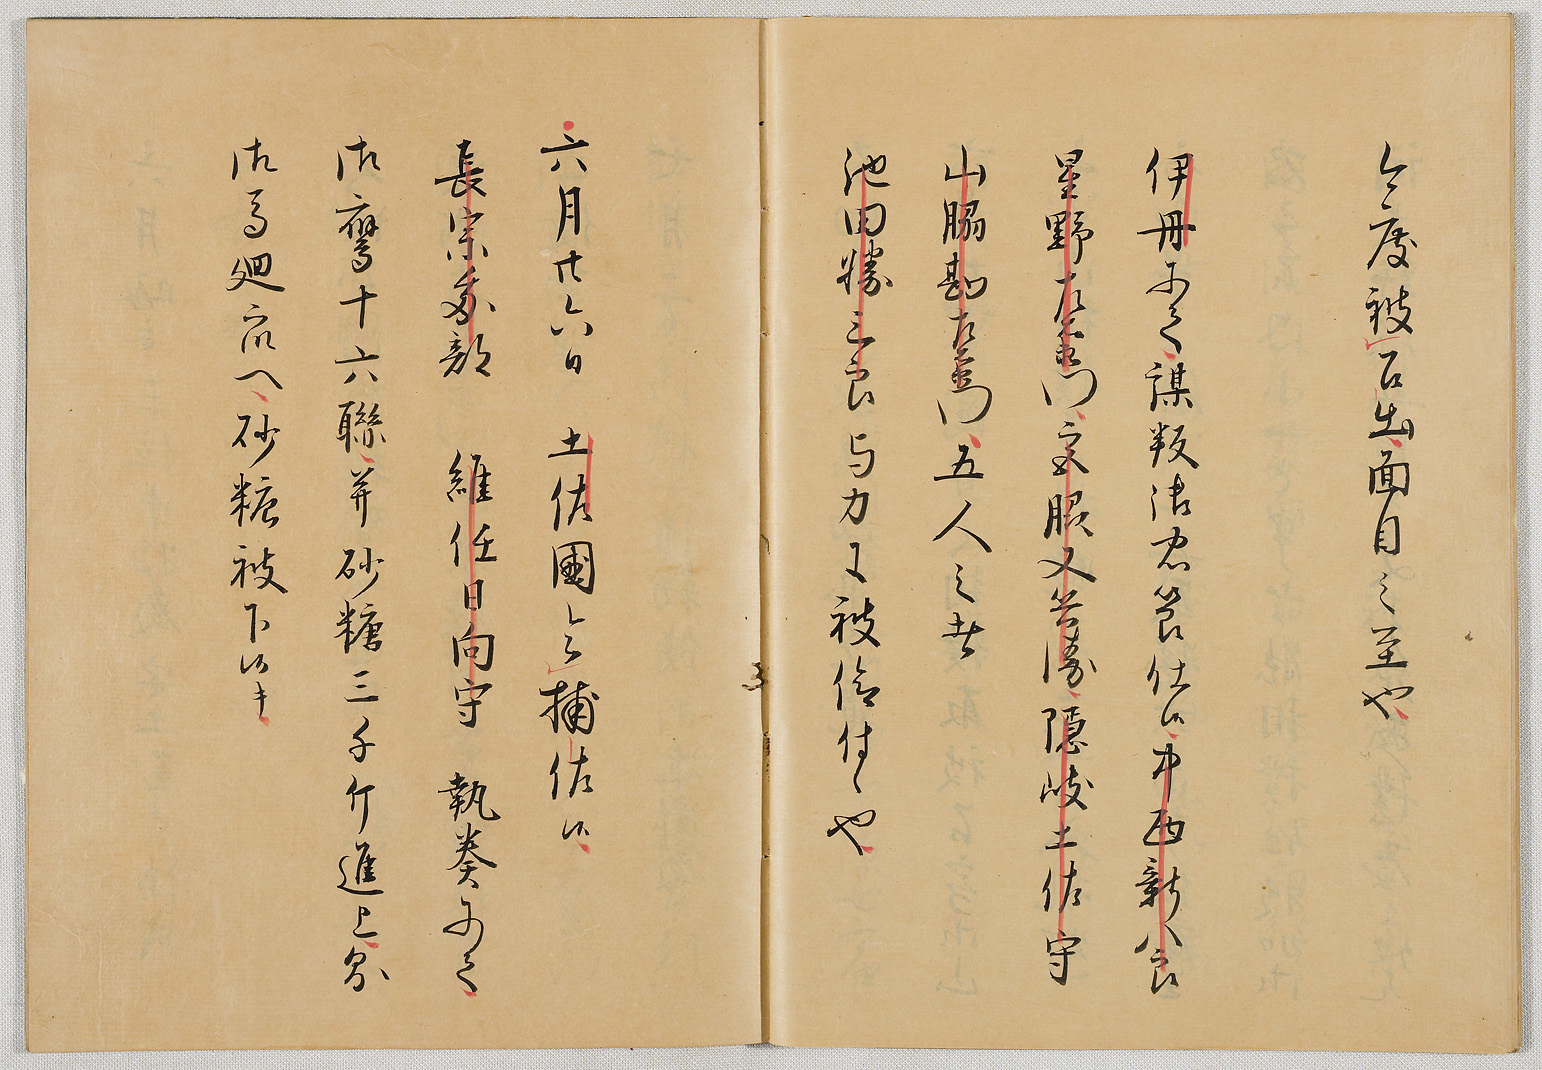 今度被召出面目之至也
伊丹にて謀叛御忠節仕候中西新八郎
星野左衛門宮脇又兵衛隠岐土佐守
山脇勘左衛門五人之者
池田勝三郎与力に被仰付候也
六月廿六日 土佐國を捕佐候
長宗我部 維任日向守 執奏にて
御鷹十六聯并砂糖三千斤進上則
御馬廻衆へ砂糖被下候キ